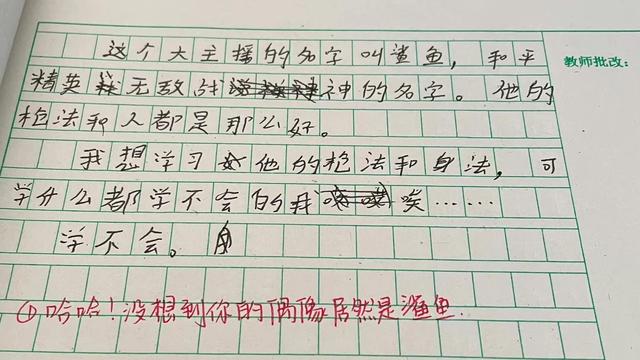 这个大主播的名字叫鲨鱼，和平
教师批改：
精英无敌战神的名字。他的
枪法和人都是那么好。
我想学习他的枪法和身法，可
学什么都学不会的我唉……
学不会。
①哈哈！没想到你的偶像居然是鲨鱼.